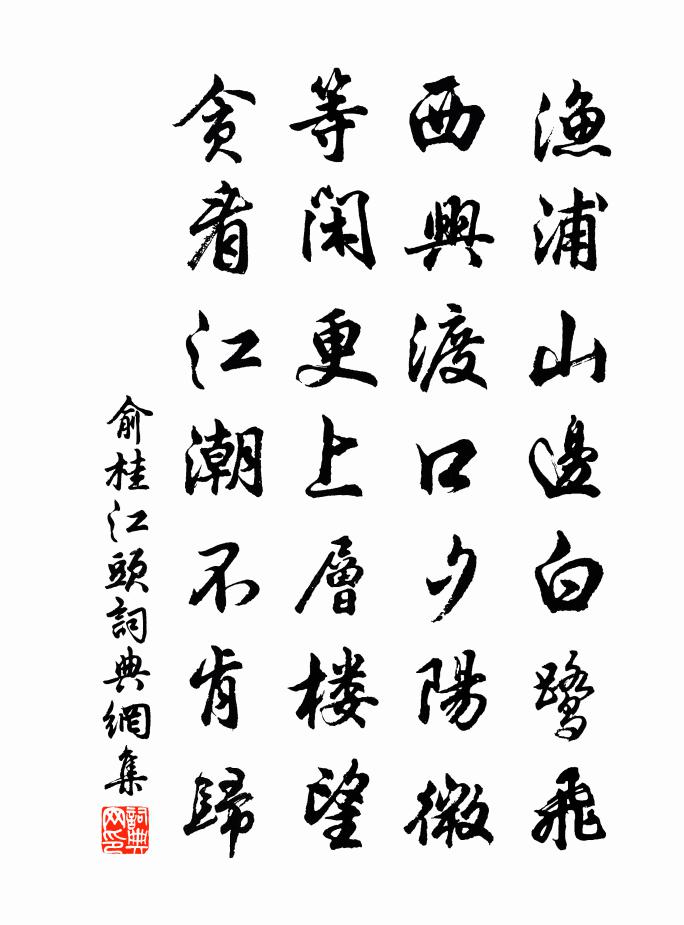 漁浦山邊白鷺飛
西興渡口夕陽微
等閑更上層楼望
貪看江潮不肯歸
俞桂江頭詞典網集
詞典网印